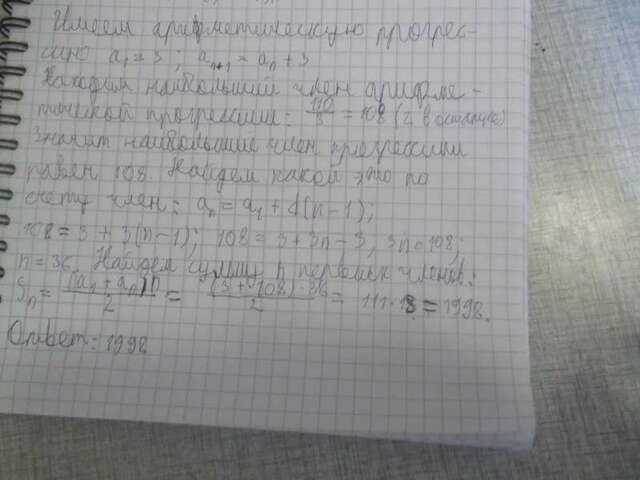 Имеем арифметическую прогрес-
сию a₁ = 3 ; aₙ₊₁ = aₙ + 3
Находим наибольший член арифме-
тической прогрессии: 110/3 = 108 (2 в остатке)
Значит наибольший член прогрессии
равен 108. Найдем какой это по
счету член: aₙ = a₁ + d(n-1);
108 = 3 + 3(n-1); 108 = 3 + 3n - 3, 3n = 108;
n = 36. Найдем сумму n первых членов:
Sₙ = (a₁ + aₙ)n/2 = (3 + 108)·36/2 = 111·18 = 1998.
Ответ: 1998